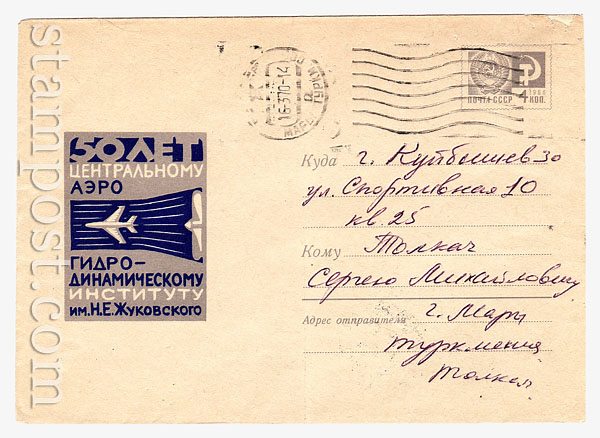 stampost.com
16-370-14
МАРЫ
ПОЧТА СССР
1966
4 КОП.
50 ЛЕТ
ЦЕНТРАЛЬНОМУ
АЭРО
ГИДРО-
ДИНАМИЧЕСКОМУ
ИНСТИТУТУ
ИМ. Н.Е. ЖУКОВСКОГО
Куда г. Куйбышев 30
ул. Спортивная 10
кв. 25
Кому Толкач
Сергею Михайловичу
Адрес отправителя г. Мары
туркмения
Толкач